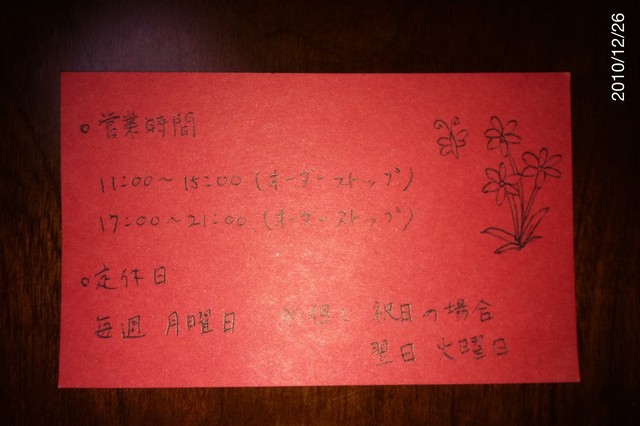 2010/12/26
○営業時間
11:00〜15:00(オーダーストップ)
17:00〜21:00(オーダーストップ)
○定休日
毎週 月曜日 祝日の場合
翌日 火曜日